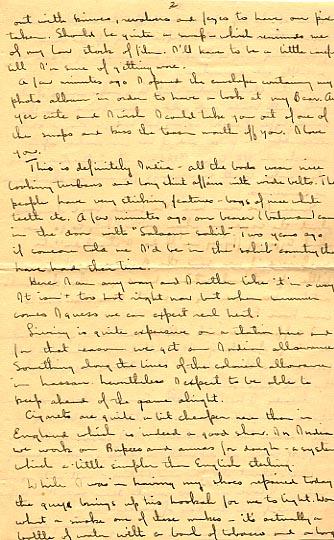 2
out with knives, revolvers and fezes to have our pic
taken. Should be quite a snap - which reminds me
of my low stock of film. I'll have to be a little careful
till I'm sure of getting more.
A few minutes ago I opened the envelope containing my
photo album in order to have a look at my Dear. A
yer cute and I wish I could take you out of one of
the snaps and kiss the tan off you. I love
you.
This is definitely India - all the boys wear nice
looking turbans and long shirt affairs with wide belts. The
people have very striking features - boys of nice white
teeth etc. A few minutes ago our bearer (batman) came
in the door with "Salaam sahib". Two years ago
if someone told me I'd be in the "sahib" country they
have had their time.
Here I am any way and I rather like it in a way
It isn't too hot right now but when summer
comes I guess we can expect real heat.
Living is quite expensive on a station here and
for that reason we get an Indian allowance
Something along the lines of the colonial allowance
in Nassau. Nonetheless I expect to be able to
keep ahead of the game alright.
Cigarets are quite a bit cheaper here than in
England which is indeed a good show. In India
we work on Rupees and annas for dough - a system
which a little simpler than English sterling.
While I was in having my shoes repaired today
the guy brings up his hookah for me to light.
what a smoke one of these makes - it's actually a
bottle of water with a bowl of tobacco and a